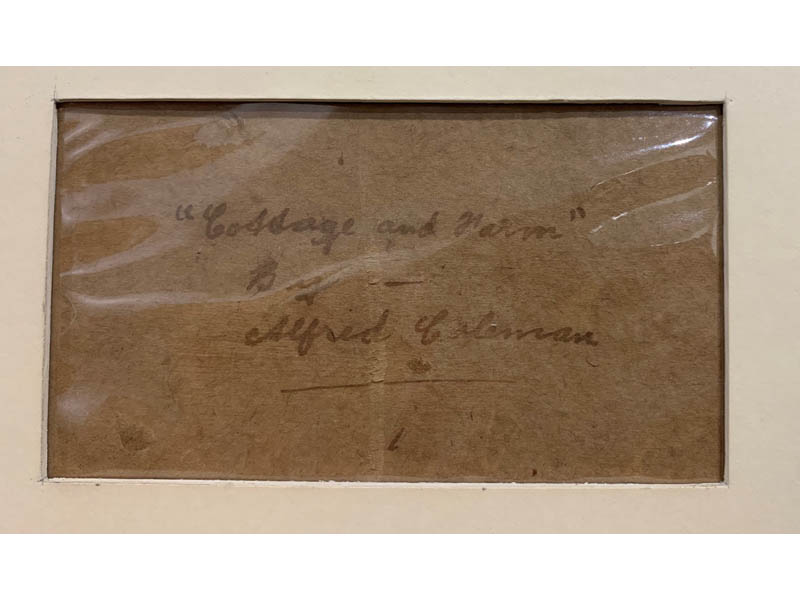 "Cottage and Farm"
By —
Alfred Coleman